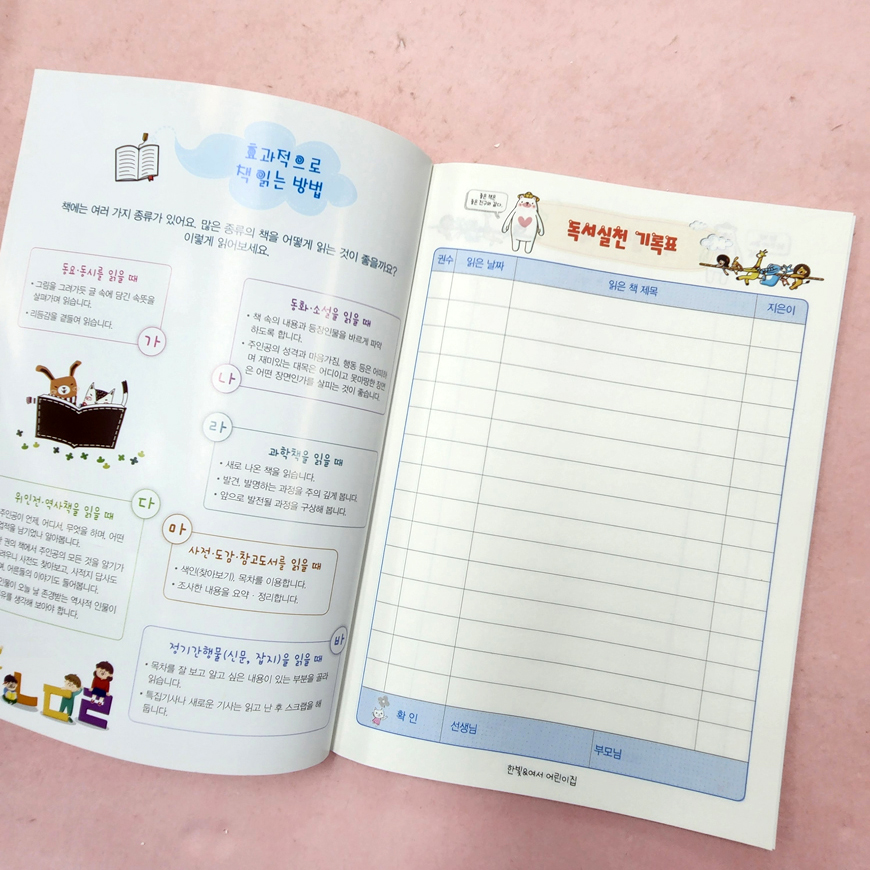 효과적으로
책 읽는 방법
책에는 여러 가지 종류가 있어요. 많은 종류의 책을 어떻게 읽는 것이 좋을까요?
이렇게 읽어보세요.
동요·동시를 읽을 때
• 그림을 그려가듯 글 속에 담긴 속뜻을
살펴가며 읽습니다.
• 리듬감을 곁들여 읽습니다.
가
동화·소설을 읽을 때
• 책 속의 내용과 등장인물을 바르게 파악
하도록 합니다.
• 주인공의 성격과 마음가짐, 행동 등은 어떠하
며 재미있는 대목은 어디이고 못마땅한 장면
은 어떤 장면인가를 살피는 것이 좋습니다.
나
라
과학책을 읽을 때
• 새로 나온 책을 읽습니다.
• 발견, 발명하는 과정을 주의 깊게 봅니다.
• 앞으로 발전될 과정을 구상해 봅니다.
다
위인전·역사책을 읽을 때
주인공이 언제, 어디서, 무엇을 하며, 어떤
업적을 남기었나 알아봅니다.
권의 책에서 주인공의 모든 것을 알기가
려우니 사전도 찾아보고, 사적지 답사도
며, 어른들의 이야기도 들어봅니다.
인물이 오늘 날 존경받는 역사적 인물이
유를 생각해 보아야 합니다.
마
사전·도감·참고도서를 읽을 때
• 색인(찾아보기), 목차를 이용합니다.
• 조사한 내용을 요약 · 정리합니다.
바
정기간행물(신문, 잡지)을 읽을 때
• 목차를 잘 보고 알고 싶은 내용이 있는 부분을 골라
읽습니다.
• 특집기사나 새로운 기사는 읽고 난 후 스크랩을 해
둡니다.
좋은 책은
좋은 친구와 같다.
독서실천 기록표
권수 읽은 날짜 읽은 책 제목 지은이
확 인 선생님 부모님
한빛&여서 어린이집